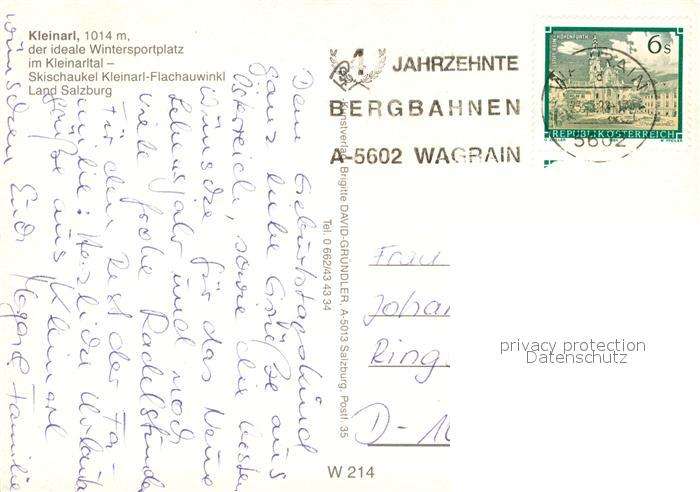 Kleinarl, 1014 m,
der ideale Wintersportplatz
im Kleinarltal –
Skischaukel Kleinarl-Flachauwinkl
Land Salzburg
4 JAHRZEHNTE
BERGBAHNEN
A-5602 WAGRAIN
6s
REPUBLIK ÖSTERREICH
WAGRAIN
5602
Kunstverlag Brigitte DAVID-GRÜNDLER, A-5013 Salzburg, Postf. 35
Tel. 0 662/43 43 34
Dem Geburtstagskind
ganz liebe Grüße aus
Österreich, sowie die besten
Wünsche für das Neue
Lebensjahr und noch
viele frohe Radelstunden
für den Rest der
Herzliche Urlaubs
grüße aus Kleinarl
wünschen Euch Familie
Frau
Johan
Ring
D-10
privacy protection
Datenschutz
W 214